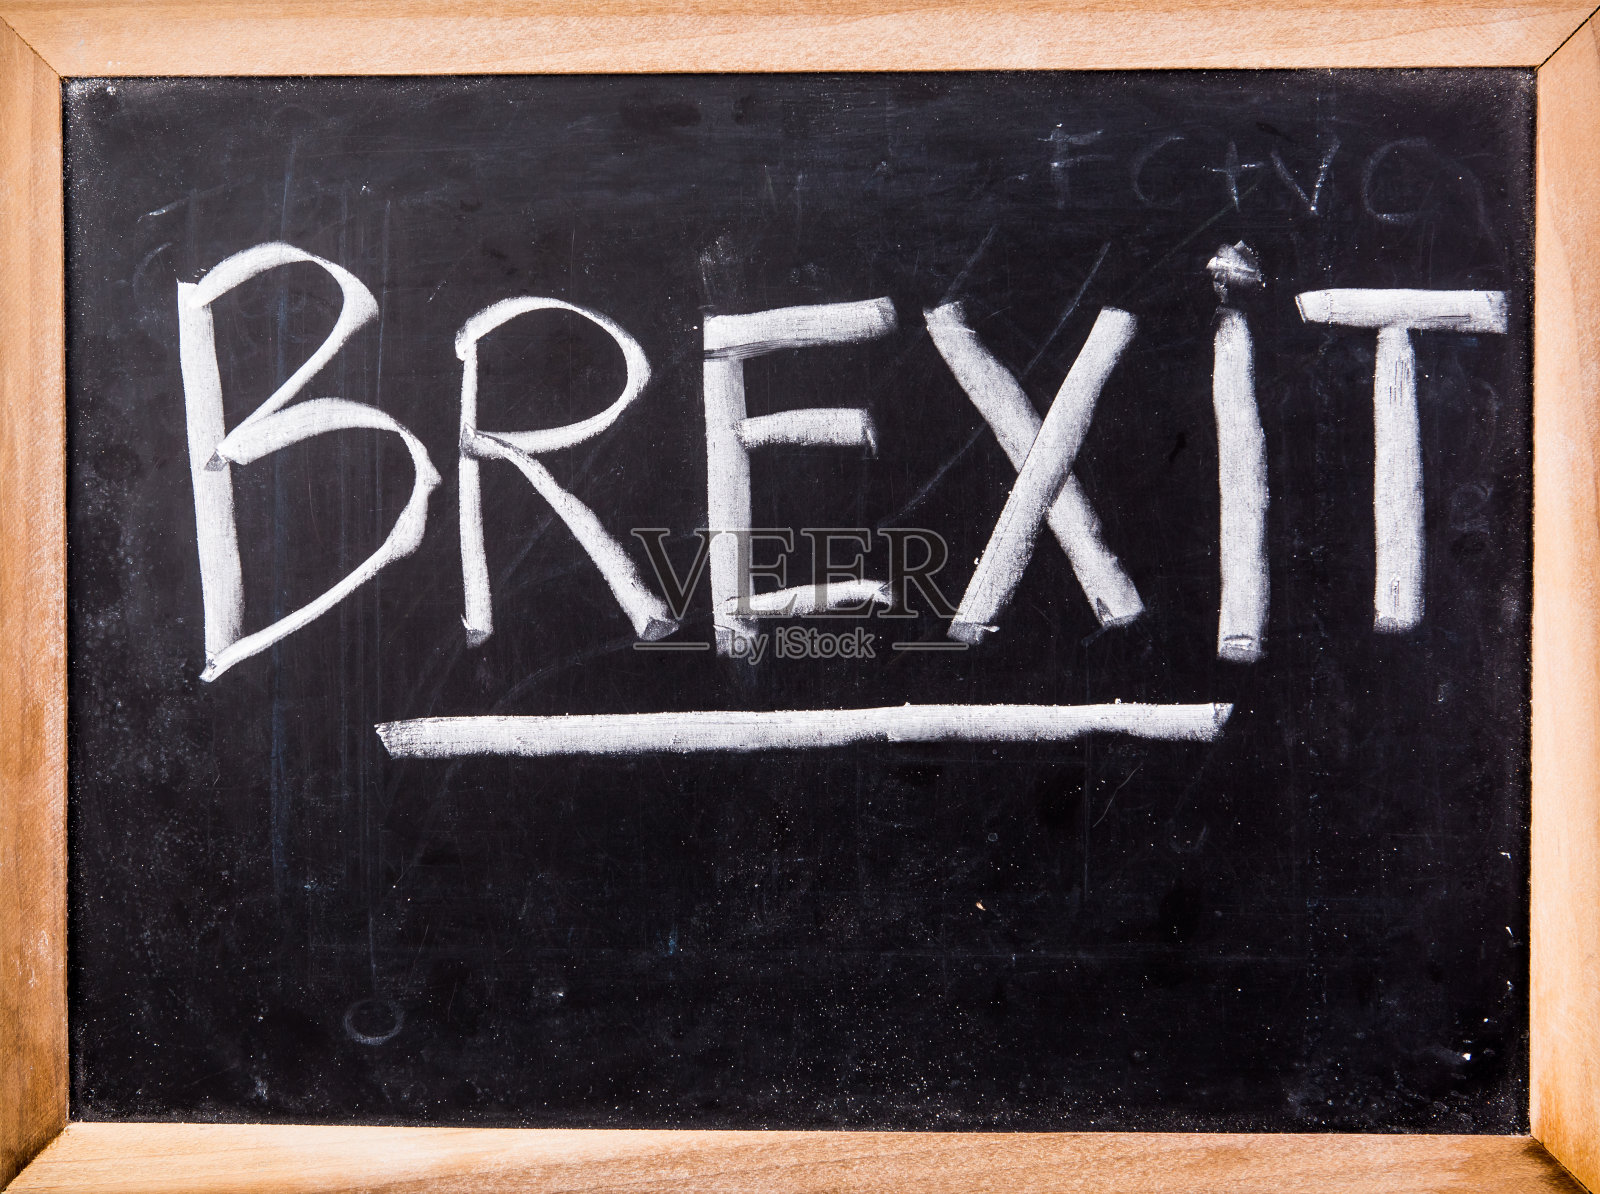 BREXiT
VEER
by iStock